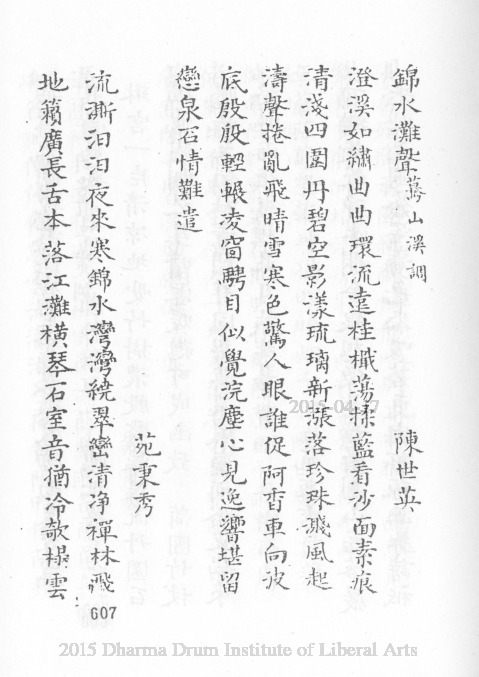 錦水灘聲驀山溪調 陳世英
澄溪如繡曲曲環流遠桂檝蕩揉藍看沙面素痕
清淺四圍丹碧空影漾琉璃新漲落珍珠濺風起
濤聲捲亂飛晴雪寒色驚人眼誰促阿香車向波
底殷殷輕輾凌窗騁目似覺浣塵心見逸響堪留
戀泉石情難遣
苑秉秀
流澌汩汩夜來寒錦水灣灣繞翠巒清净禪林飛
地籟廣長舌本落江灘橫琴石室音猶冷欹榻雲
607
2015-04-17
2015 Dharma Drum Institute of Liberal Arts